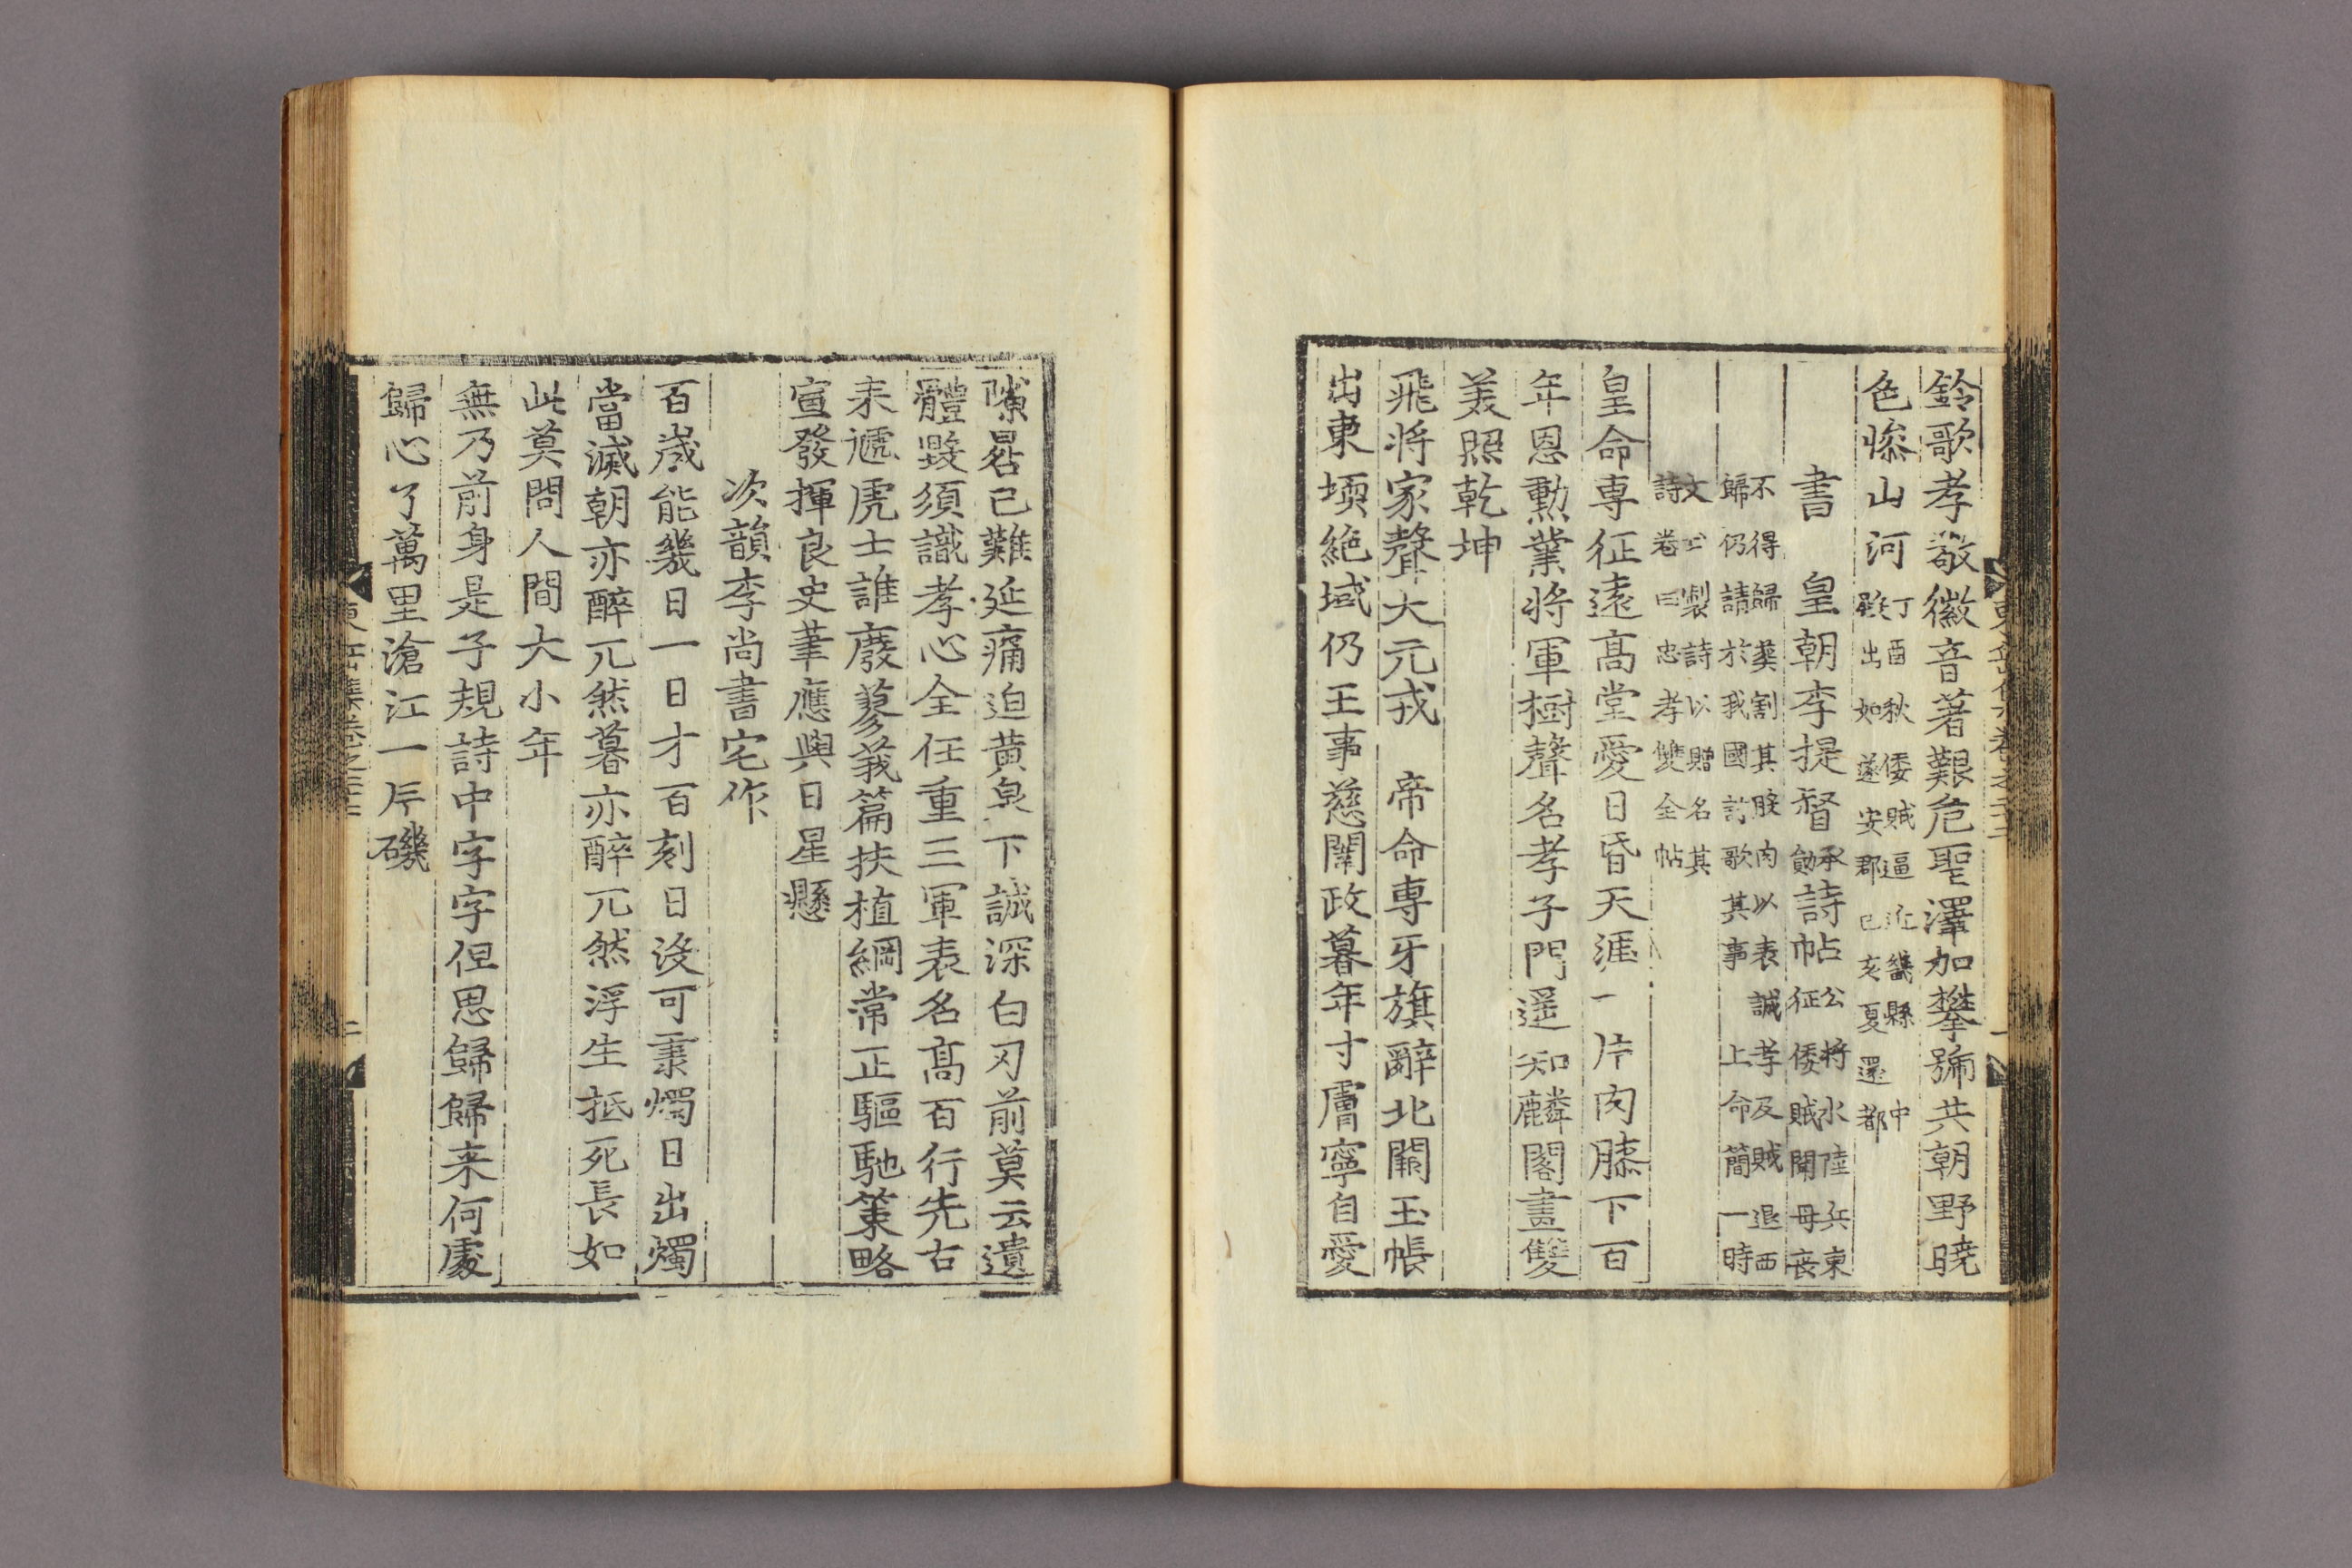 鈴歌孝敬徽音著艱危聖澤加攀號共朝野曉
色慘山河丁酉秋倭賊逼近畿縣中
殿出如遂安郡己亥夏還都
書 皇朝李提督承
勛詩帖公將水陸兵東
征倭賊聞母喪
不得歸葬割其股肉以表誠孝及賊退西
歸仍請於我國討歌其事 上命簡一時
文士製詩以贈名其
詩卷曰忠孝雙全帖
皇命專征遠高堂愛日昏天涯一片肉膝下百
年恩勳業將軍樹聲名孝子門遥知麟閣畫雙
美照乾坤
飛將家聲大元戎 帝命專牙旗辭北闕玉帳
出東堧絶域仍王事慈闈政暮年寸膚寧自愛
隙晷已難延痛迫黄泉下誠深白刃前莫云遺
體毀須識孝心全任重三軍表名高百行先古
来遞虎士誰廢蓼莪篇扶植綱常正驅馳策略
宣發揮良史筆應與日星懸
次韻李尚書宅作
百歲能幾日一日才百刻日没可秉燭日出燭
當滅朝亦醉兀然暮亦醉兀然浮生抵死長如
此莫問人間大小年
無乃前身是子規詩中字字但思歸歸来何處
歸心了萬里滄江一片磯
二